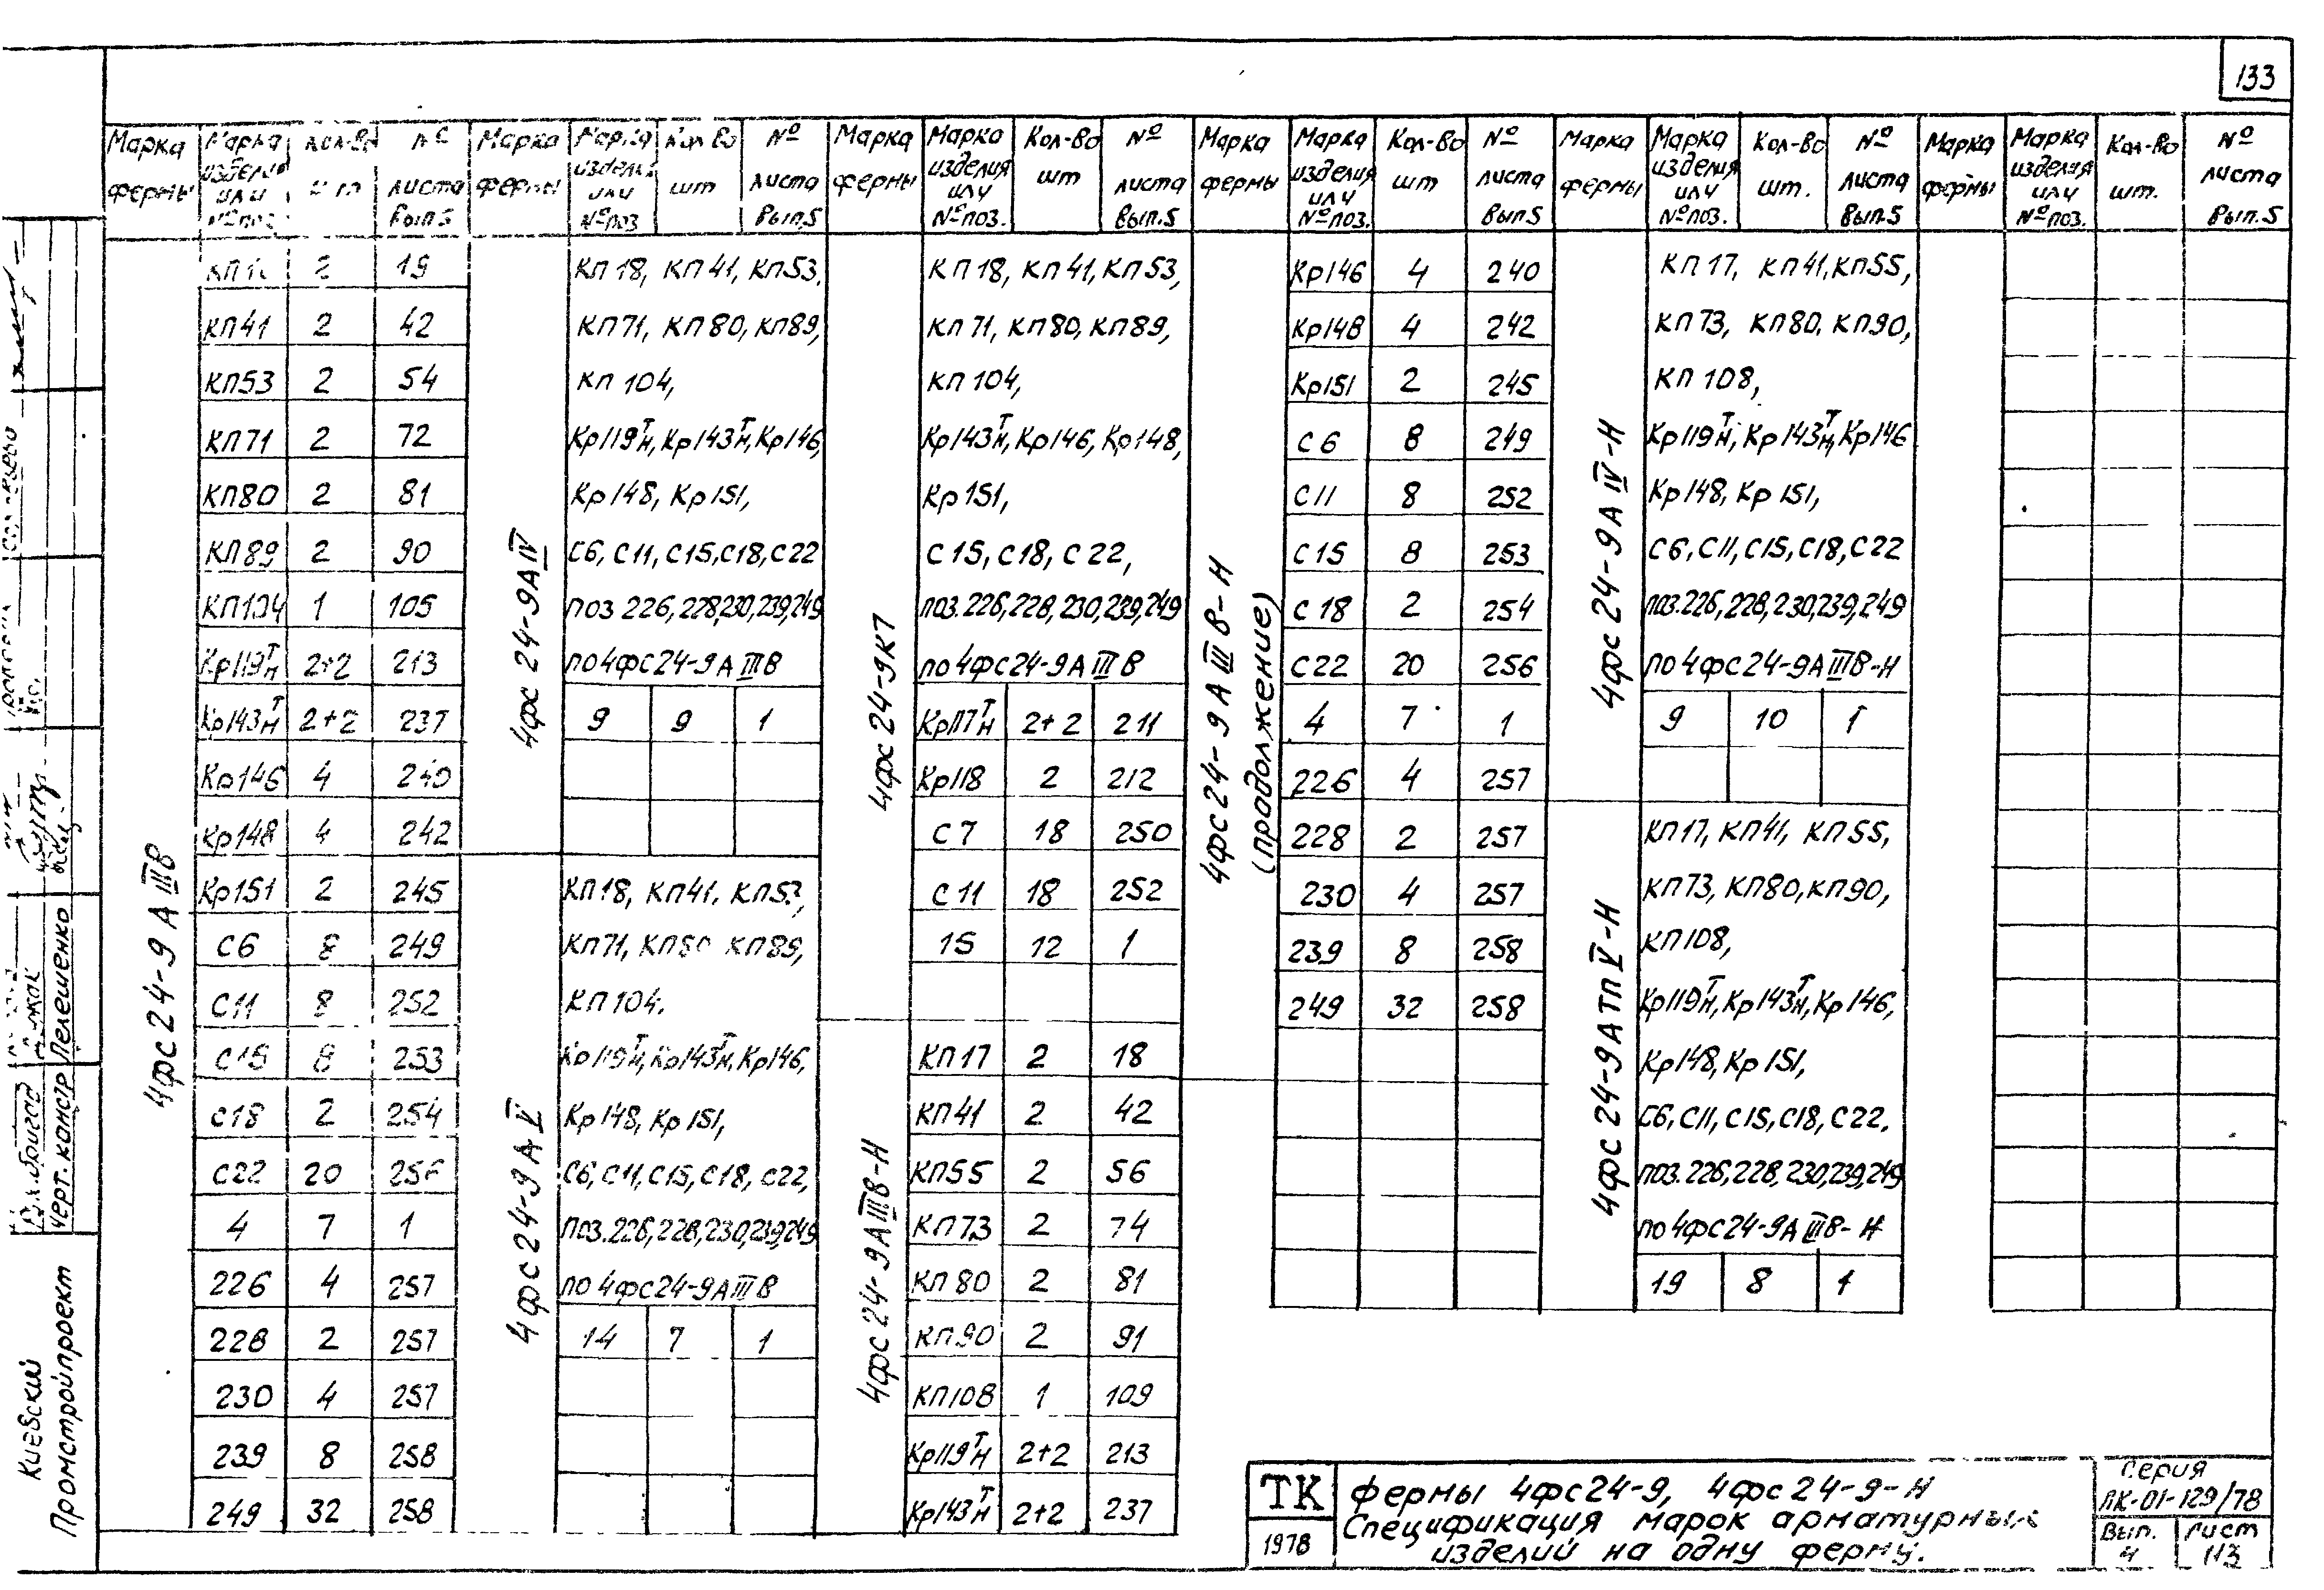 133
Марка фермы | Марка изделия или № поз. | Кол-во шт | № листа вып.5 | Марка фермы | Марка изделия или № поз | Кол-во шт | № листа вып.5 | Марка фермы | Марка изделия или № поз. | Кол-во шт | № листа вып.5 | Марка фермы | Марка изделия или № поз. | Кол-во шт | № листа вып.5 | Марка фермы | Марка изделия или № поз. | Кол-во шт. | № листа вып.5 | Марка фермы | Марка изделия или № поз. | Кол-во шт. | № листа вып.5
4фс24-9АIIIв
2 19
КП41 2 42
КП53 2 54
КП71 2 72
КП80 2 81
КП89 2 90
КП104 1 105
Кр119тн 2+2 213
Кр143тн 2+2 237
Кр146 4 240
Кр148 4 242
Кр151 2 245
С6 8 249
С11 8 252
С15 8 253
С18 2 254
С22 20 256
4 7 1
226 4 257
228 2 257
230 4 257
239 8 258
249 32 258
4фс24-9АIV
КП18, КП41, КП53,
КП71, КП80, КП89,
КП104,
Кр119тн, Кр143тн, Кр146,
Кр148, Кр151,
С6, С11, С15, С18, С22
поз 226, 228, 230, 239, 249
по 4фс24-9АIIIв
9 9 1
4фс24-9АV
КП18, КП41, КП53,
КП71, КП80 КП89,
КП104.
Кр119тн, Кр143тн, Кр146,
Кр148, Кр151,
С6, С11, С15, С18, С22,
поз. 226, 228, 230, 239, 249
по 4фс24-9АIIIв
14 7 1
4фс24-9К7
КП18, КП41, КП53,
КП71, КП80, КП89,
КП104,
Кр143тн, Кр146, Кр148,
Кр151,
С15, С18, С22,
поз. 226, 228, 230, 239, 249
по 4фс24-9АIIIв
Кр117тн 2+2 211
Кр118 2 212
С7 18 250
С11 18 252
15 12 1
4фс24-9АIIIв-Н
КП17 2 18
КП41 2 42
КП55 2 56
КП73 2 74
КП80 2 81
КП90 2 91
КП108 1 109
Кр119тн 2+2 213
Кр143тн 2+2 237
4фс24-9АIIIв-Н
(продолжение)
Кр146 4 240
Кр148 4 242
Кр151 2 245
С6 8 249
С11 8 252
С15 8 253
С18 2 254
С22 20 256
4 7 1
226 4 257
228 2 257
230 4 257
239 8 258
249 32 258
4фс24-9АIV-Н
КП17, КП41, КП55,
КП73, КП80, КП90,
КП108,
Кр119тн, Кр143тн, Кр146
Кр148, Кр151,
С6, С11, С15, С18, С22
поз. 226, 228, 230, 239, 249
по 4фс24-9АIIIв-Н
9 10 1
4фс24-9АтпV-Н
КП17, КП41, КП55,
КП73, КП80, КП90,
КП108,
Кр119тн, Кр143тн, Кр146,
Кр148, Кр151,
С6, С11, С15, С18, С22.
поз. 226, 228, 230, 239, 249
по 4фс24-9АIIIв-Н
19 8 1
черт. констр Лелешенко
Киевский
Промстройпроект
ТК
1978
фермы 4фс24-9, 4фс24-9-Н
Спецификация марок арматурных
изделий на одну ферму.
Серия
ПК-01-129/78
Вып.
4
Лист
113